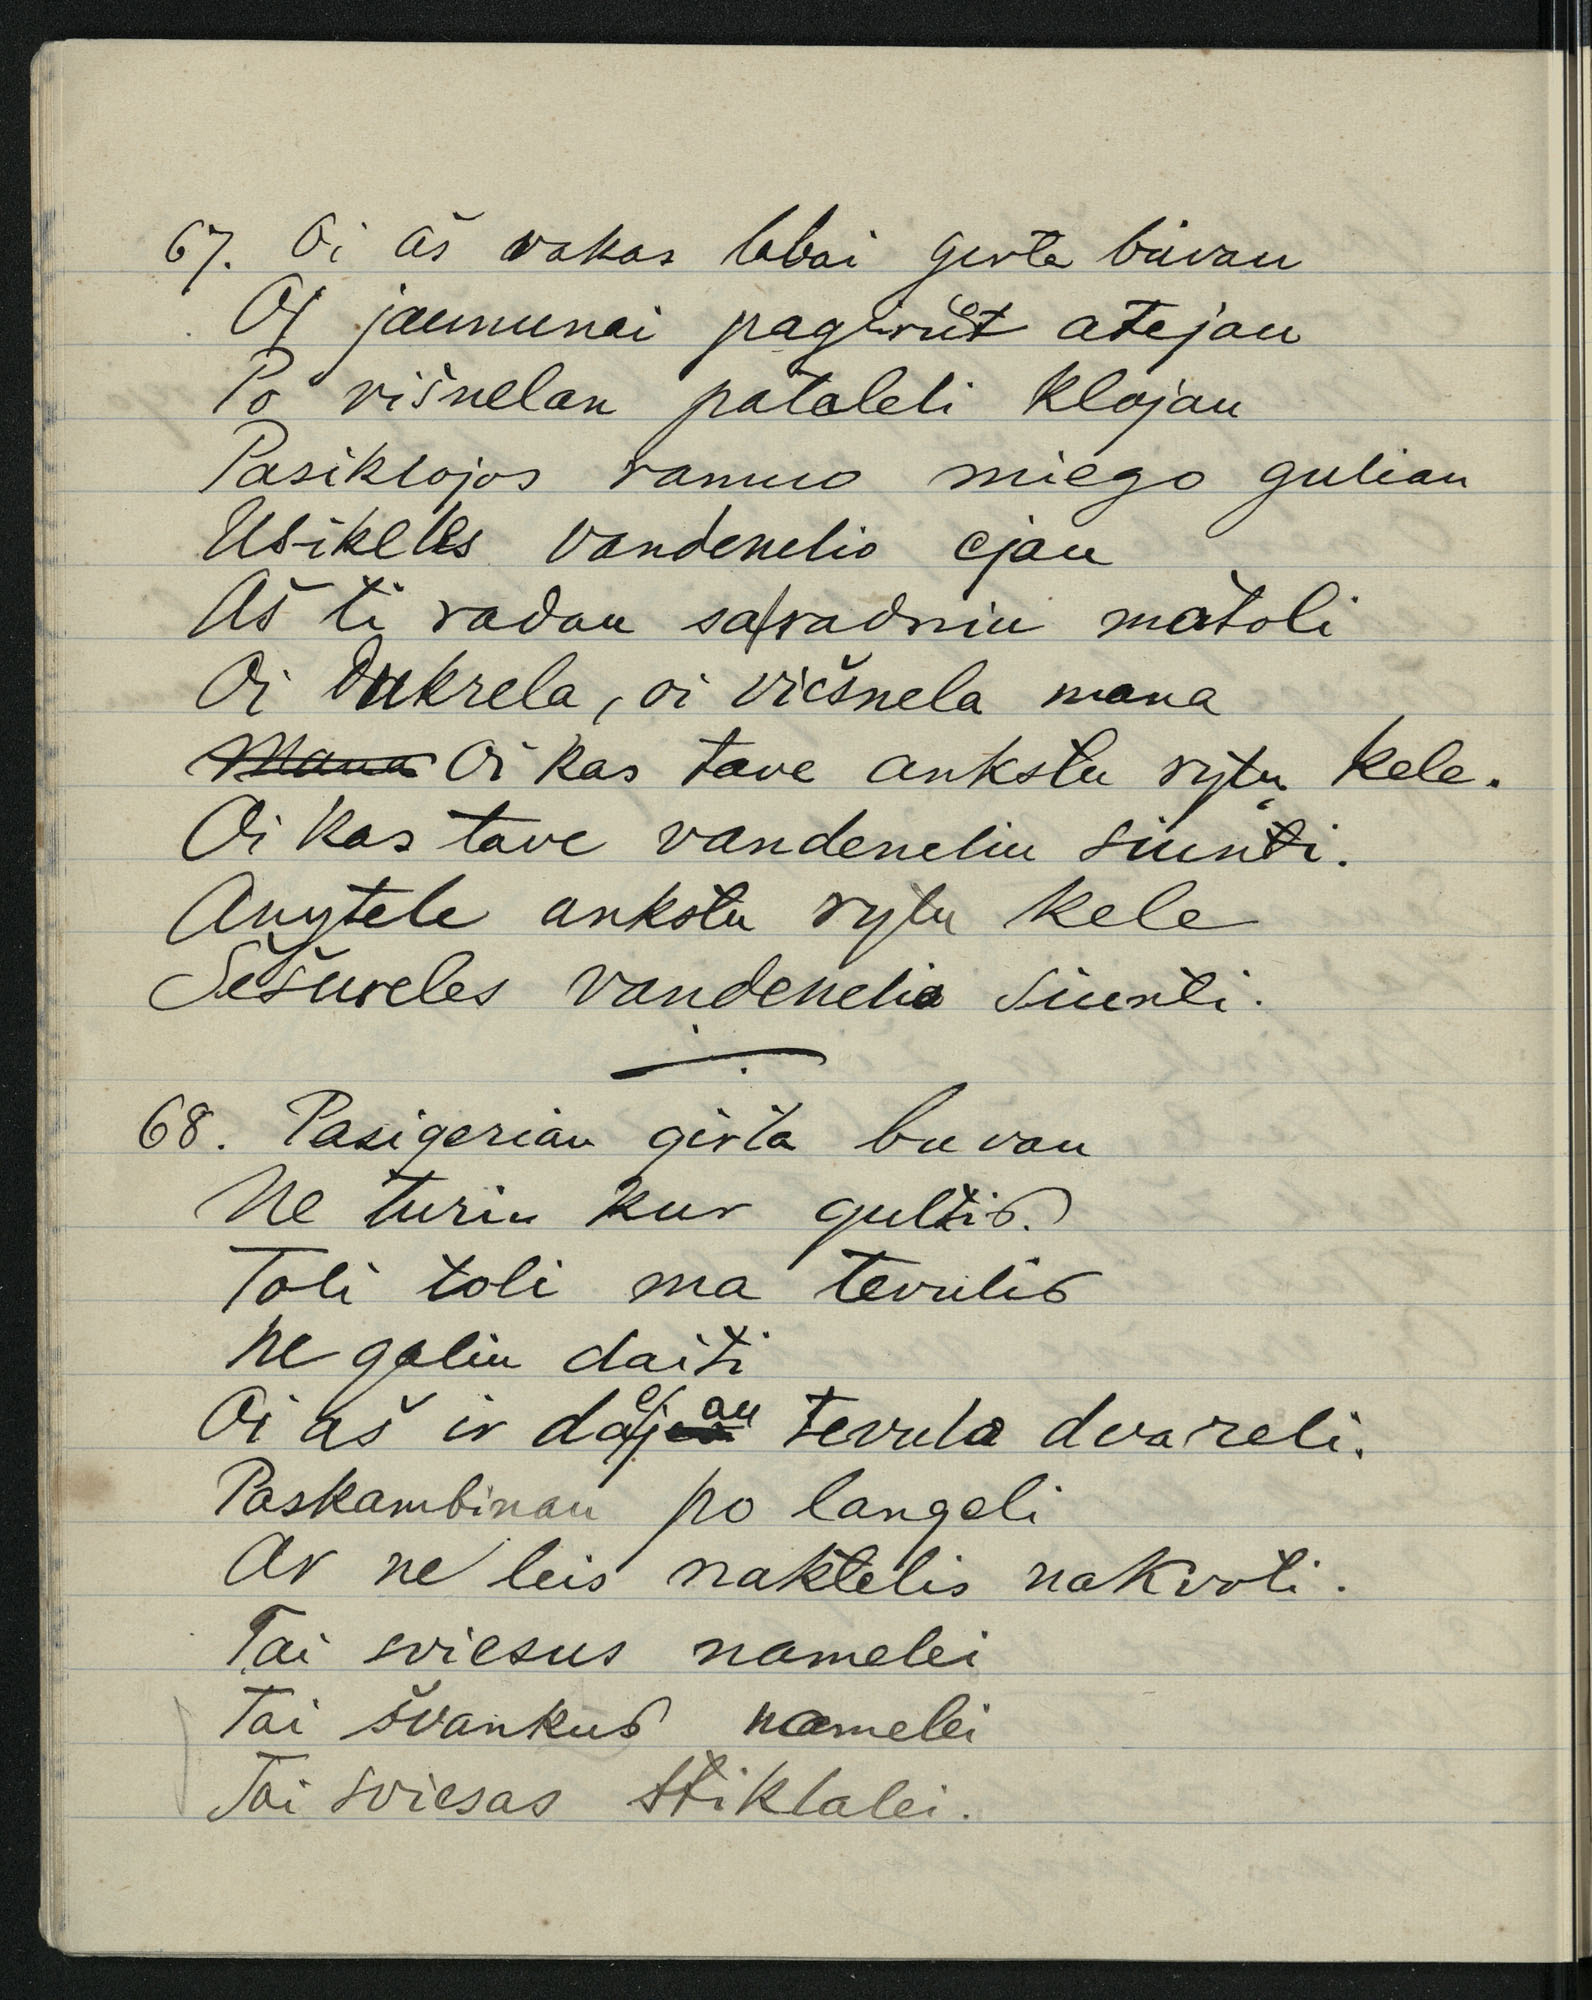 67. Oi aš vakas labai girta buvau
Oi jaumunai pagiriut atejau
Po višnelan pataleli klojau
Pasiklojos ramuo miego guliau
Usikeles vandenelio ejau
Aš ti radau sa/vadniu matoli
Oi dukrela, oi viešnela mana
Mana Oi kas tave ankstu rytu kele.
Oi kas tave vandeneliu siunti.
Anytele ankstu rytu kele
Šešureles vandenelio siunti.
68. Pasigeriau girta buvau
Ne turiu kur gultis.
Toli toli ma tevulis
Ne galiu daiti
Oi aš ir daejau tevula dvareli.
Paskambinau po langeli
Ar ne leis naktelis nakvoti.
Tai sviesus namelei
Tai švankus namelei
Tai sviesas stiklalei.